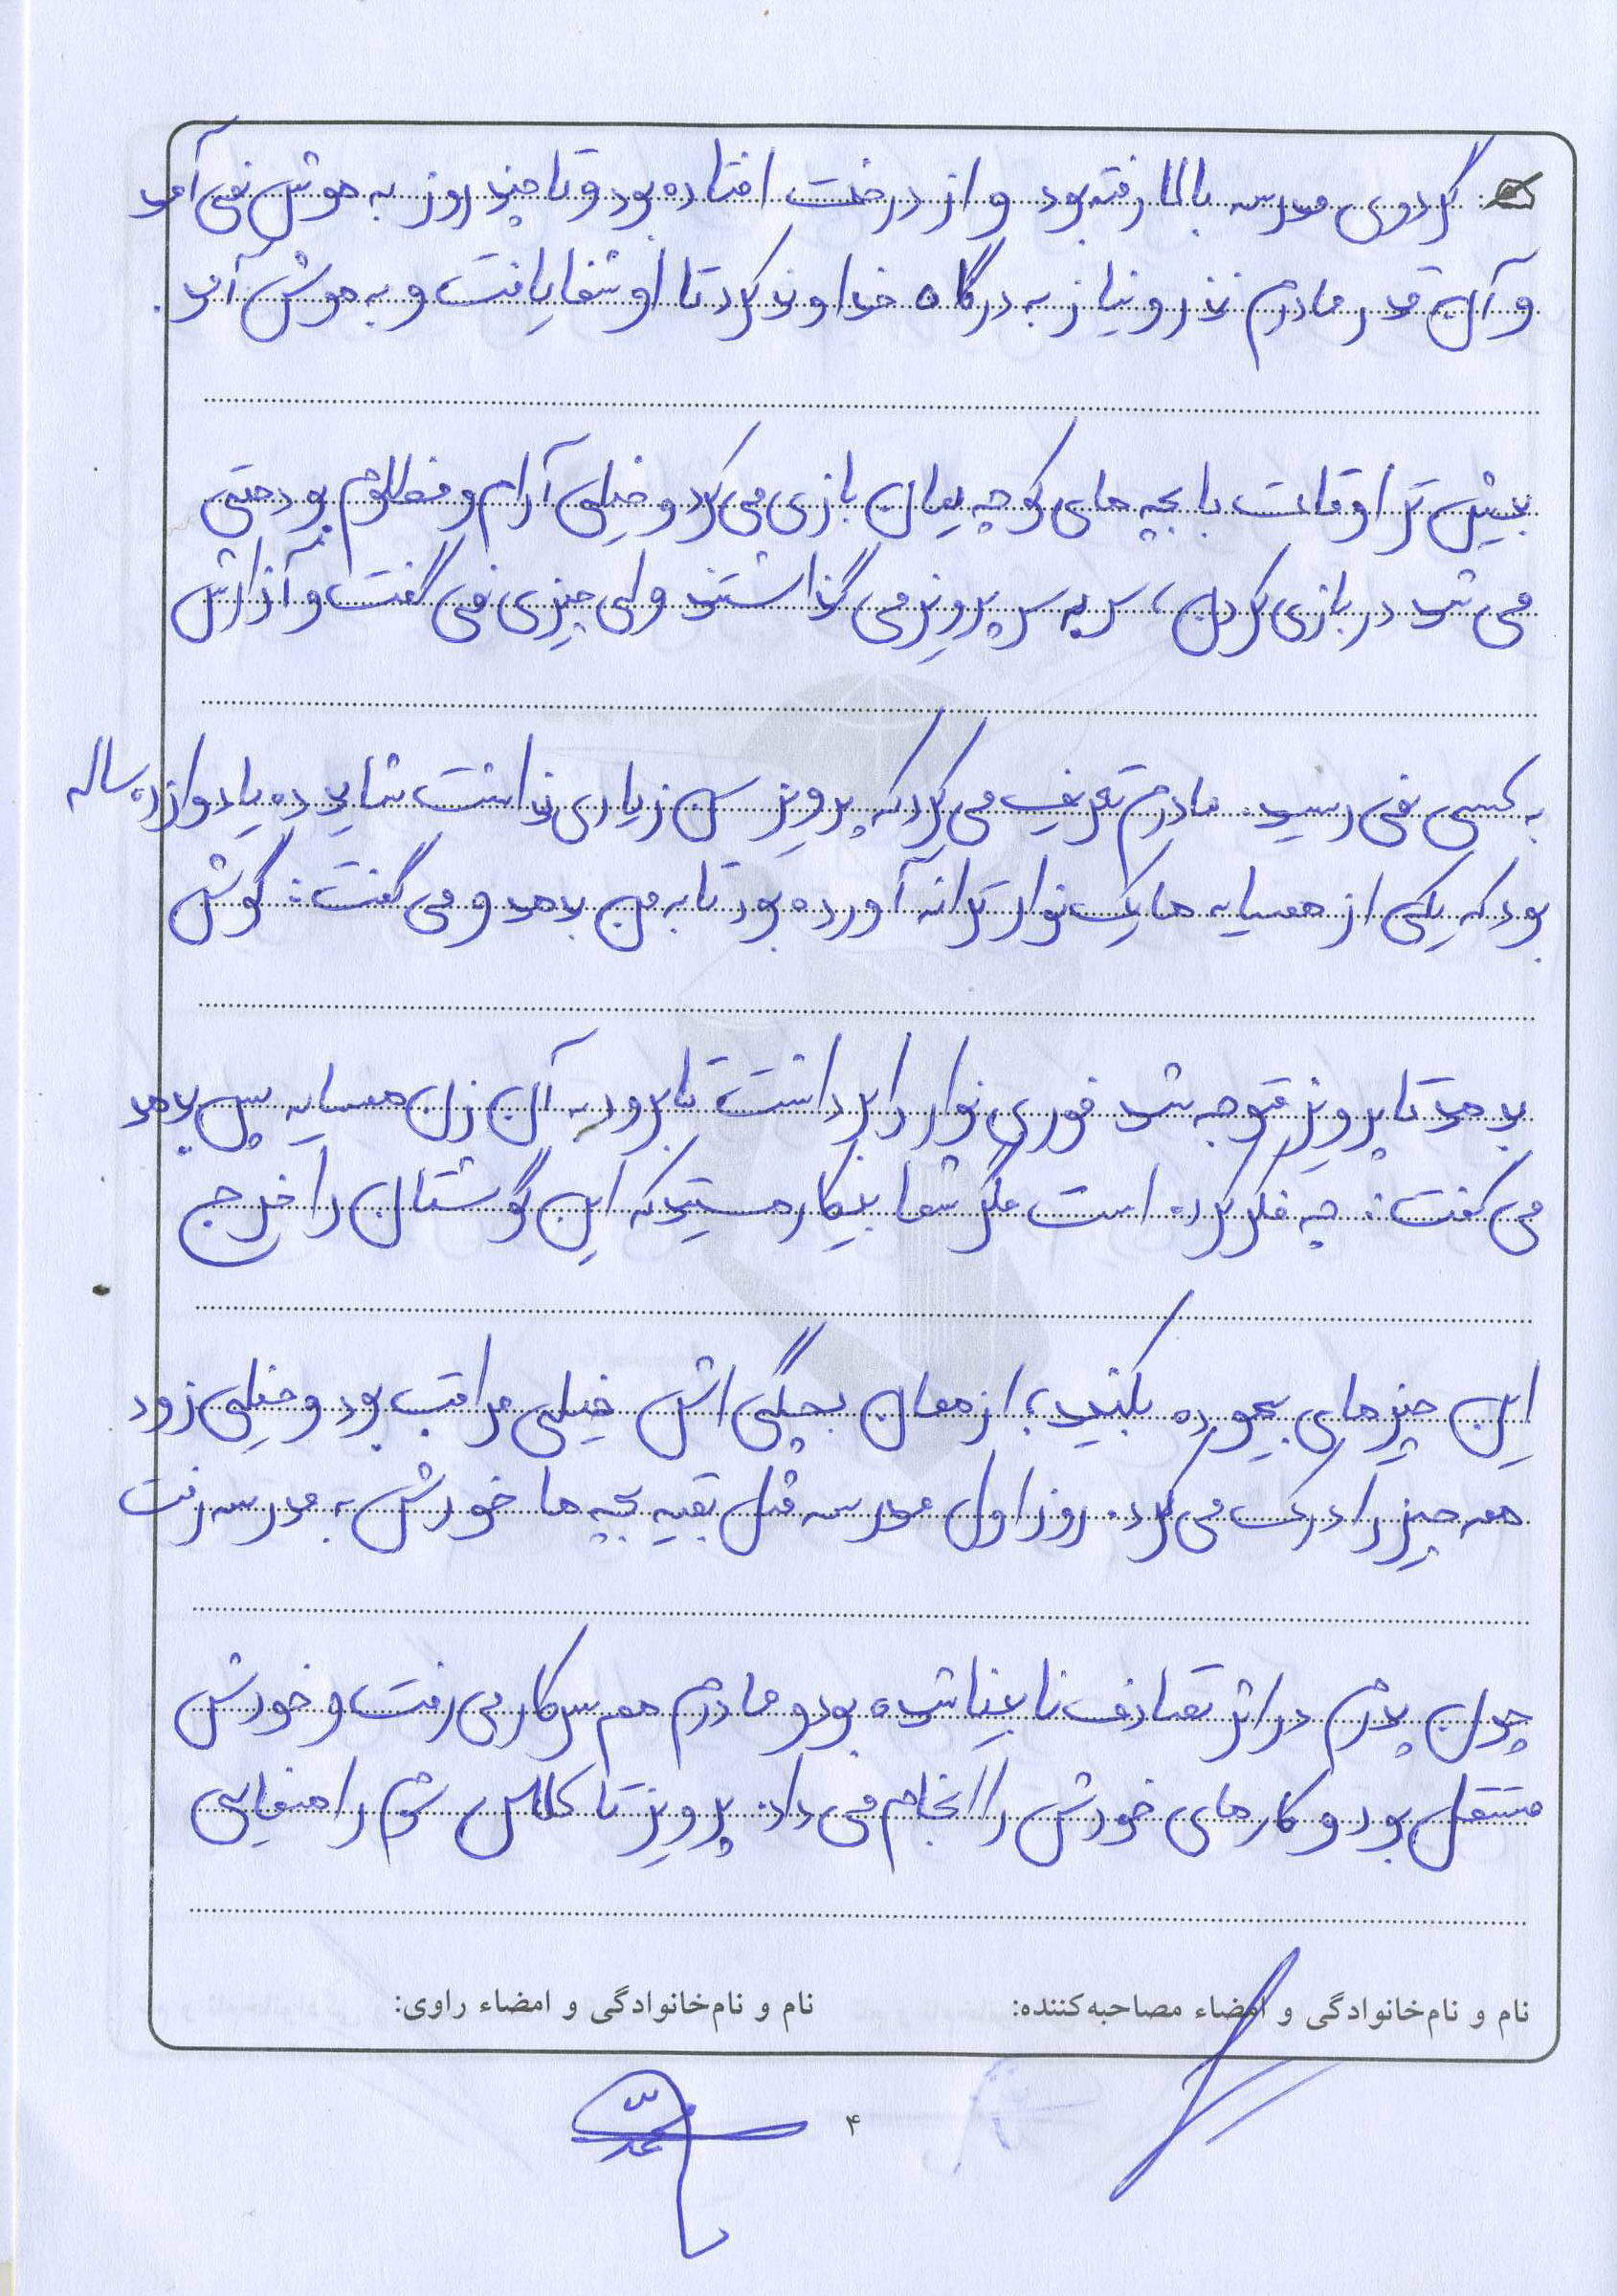 گردوی مدرسه بالا رفته بود و از درخت افتاده بود و تا چند روز به هوش نمی آمد
و آن قدر مادرم نذر و نیاز به درگاه خداوند کرد تا او شفا یافت و به هوش آمد.
بیش تر اوقات با بچه های کوچه یمان بازی می کرد و خیلی آرام و مظلوم بود حتی
می شد در بازی کردن، سر به سر پرویز می گذاشتند ولی چیزی نمی گفت و آزارش
به کسی نمی رسید. مادرم تعریف می کرد که پرویز سن زیاری نداشت شاید ده یا دوازده ساله
بود که یکی از همسایه ها یک نوار ترانه آورده بود تا به من بدهد و می گفت: گوش
بدهد تا پرویز متوجه شد فوری نوار را برداشت تا برود به آن زن همسایه پس بدهد
می گفت: چه فکر کرده است مگر شما بیکار هستید که این گوشتان را خرج
این چیزهای بیهوده بکنید؛ از همان بچگی اش خیلی مراقب بود و خیلی زود
همه چیز را درک می کرد. روز اول مدرسه مثل بقیه بچه ها خودش به مدرسه رفت
چون پدرم در اثر تصادف نابینا شده بود و مادرم هم سر کار می رفت و خودش
مستقل بود و کارهای خودش را انجام می داد. پرویز تا کلاس سوم راهنمایی
نام و نام‌خانوادگی و امضاء مصاحبه‌کننده:
نام و نام‌خانوادگی و امضاء راوی:
۴